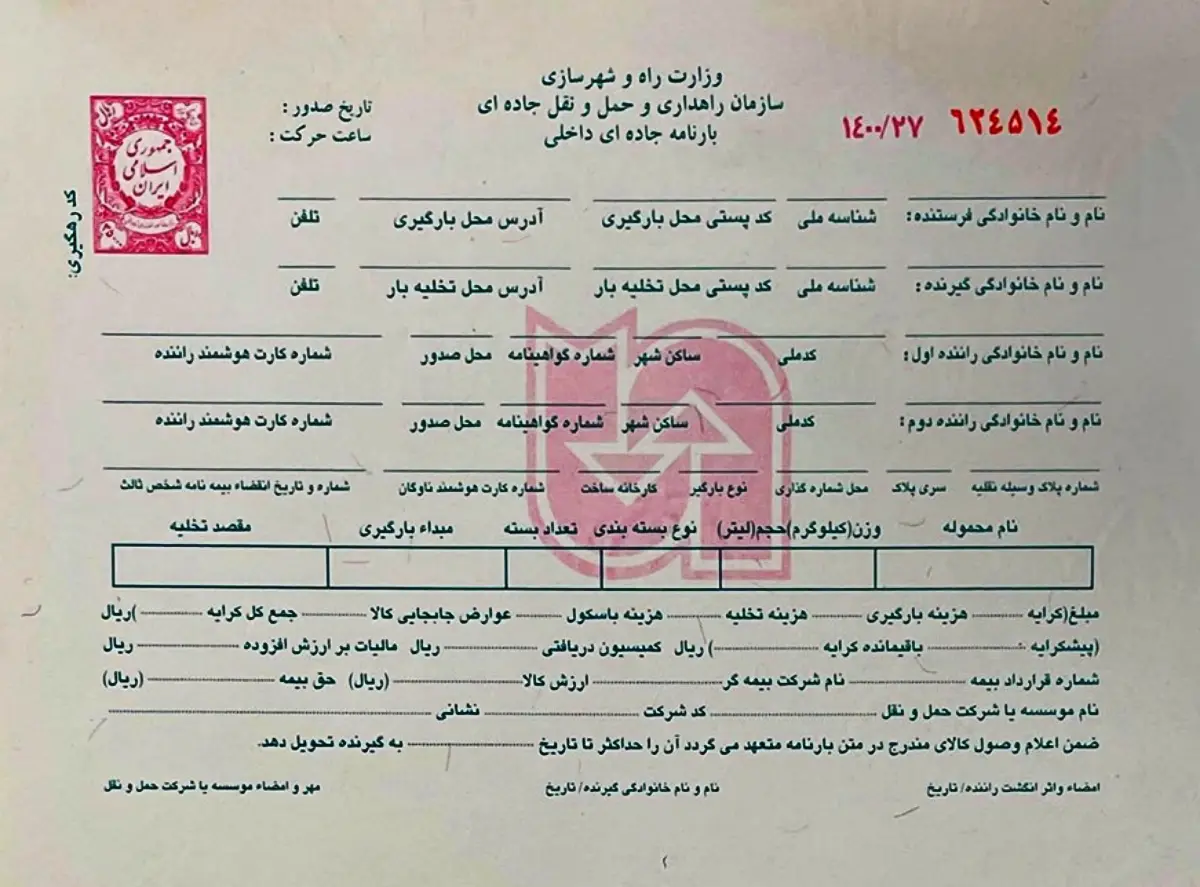 وزارت راه و شهرسازی
سازمان راهداری و حمل و نقل جاده ای
بارنامه جاده ای داخلی
۶۲۴۵۱۴ ۱۴۰۰/۲۷
تاریخ صدور :
ساعت حرکت :
ریال
جمهوری
اسلامی
ایران
ریال
کد رهگیری:
نام و نام خانوادگی فرستنده: شناسه ملی کد پستی محل بارگیری آدرس محل بارگیری تلفن
نام و نام خانوادگی گیرنده: شناسه ملی کد پستی محل تخلیه بار آدرس محل تخلیه بار تلفن
نام و نام خانوادگی راننده اول: کدملی ساکن شهر شماره گواهینامه محل صدور شماره کارت هوشمند راننده
نام و نام خانوادگی راننده دوم: کدملی ساکن شهر شماره گواهینامه محل صدور شماره کارت هوشمند راننده
شماره پلاک وسیله نقلیه سری پلاک محل شماره گذاری نوع بارگیر کارخانه ساخت شماره کارت هوشمند ناوگان شماره و تاریخ انقضاء بیمه نامه شخص ثالث
نام محموله وزن(کیلوگرم)حجم(لیتر) نوع بسته بندی تعداد بسته مبداء بارگیری مقصد تخلیه
مبلغ(کرایه ---------- هزینه بارگیری ---------- هزینه تخلیه ---------- هزینه باسکول ---------- عوارض جابجایی کالا ---------- جمع کل کرایه ----------)ریال
(پیشکرایه ---------- باقیمانده کرایه ----------) ریال کمیسیون دریافتی ---------- ریال مالیات بر ارزش افزوده ---------- ریال
شماره قرارداد بیمه ---------- نام شرکت بیمه گر ---------- ارزش کالا ---------- (ریال) حق بیمه ---------- (ریال)
نام موسسه یا شرکت حمل و نقل ---------- کد شرکت ---------- نشانی ----------
ضمن اعلام وصول کالای مندرج در متن بارنامه متعهد می گردد آن را حداکثر تا تاریخ ---------- به گیرنده تحویل دهد.
امضاء واثر انگشت راننده/ تاریخ نام و نام خانوادگی گیرنده/ تاریخ مهر و امضاء موسسه یا شرکت حمل و نقل